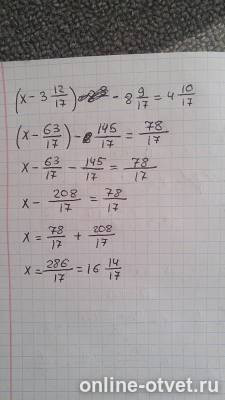 (x - 3 12/17) - 8 9/17 = 4 10/17
(x - 63/17) - 145/17 = 78/17
x - 63/17 - 145/17 = 78/17
x - 208/17 = 78/17
x = 78/17 + 208/17
x = 286/17 = 16 14/17
online-otvet.ru